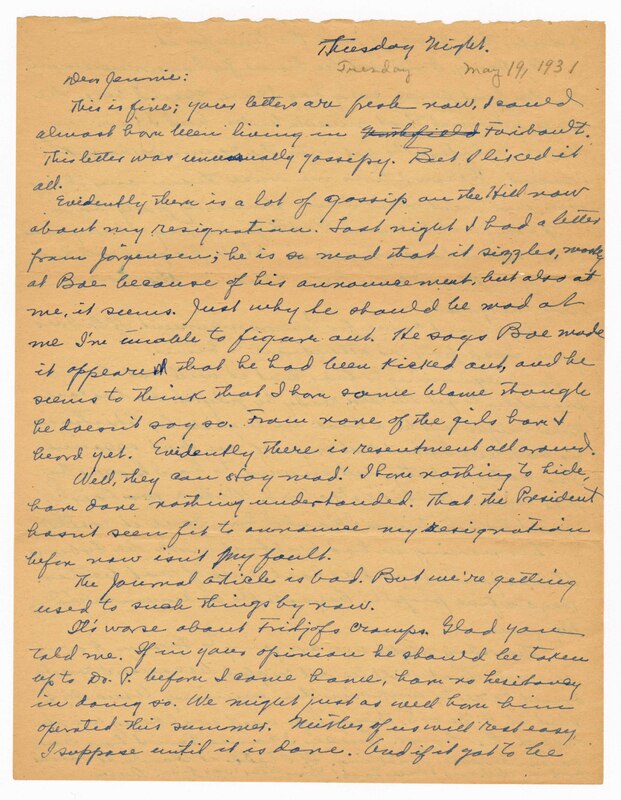 Tuesday Night.
Tuesday May 19, 1931
Dear Jennie:
This is fine; your letters are fresh now, I could
almost have been living in Northfield Faribault.
This letter was unusually gossipy. But I liked it
all.
Evidently there is a lot of gossip on the Hill now
about my resignation. Last night I had a letter
from Jörgensen; he is so mad that it sizzles, mostly
at Boe because of his announcement, but also at
me, it seems. Just why he should be mad at
me I'm unable to figure out. He says Boe made
it appear that he had been kicked out, and he
seems to think that I have some blame though
he doesn't say so. From none of the girls have I
heard yet. Evidently there is resentment all around.
Well, they can stay mad! I have nothing to hide,
have done nothing underhanded. That the President
hasn't seen fit to announce my resignation
before now isn't my fault.
The Journal aticle is bad. But we're getting
used to such things by now.
It's worse about Fritjofs cramps. Glad you
told me. If in your opinion he should be taken
up to Dr. P. before I come home, have no hesitancy
in doing so. We might just as well have him
operated this summer. Neither of us will rest easy
I suppose until it is done. And if it got to be